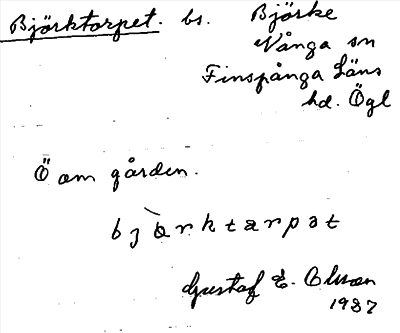 Björktorpet. bs. Björke
Vånga sn
Finspånga Läns
hd. Ögl
Ö om gården.
bjòrktarpat
Gustaf E. Olsson
1937